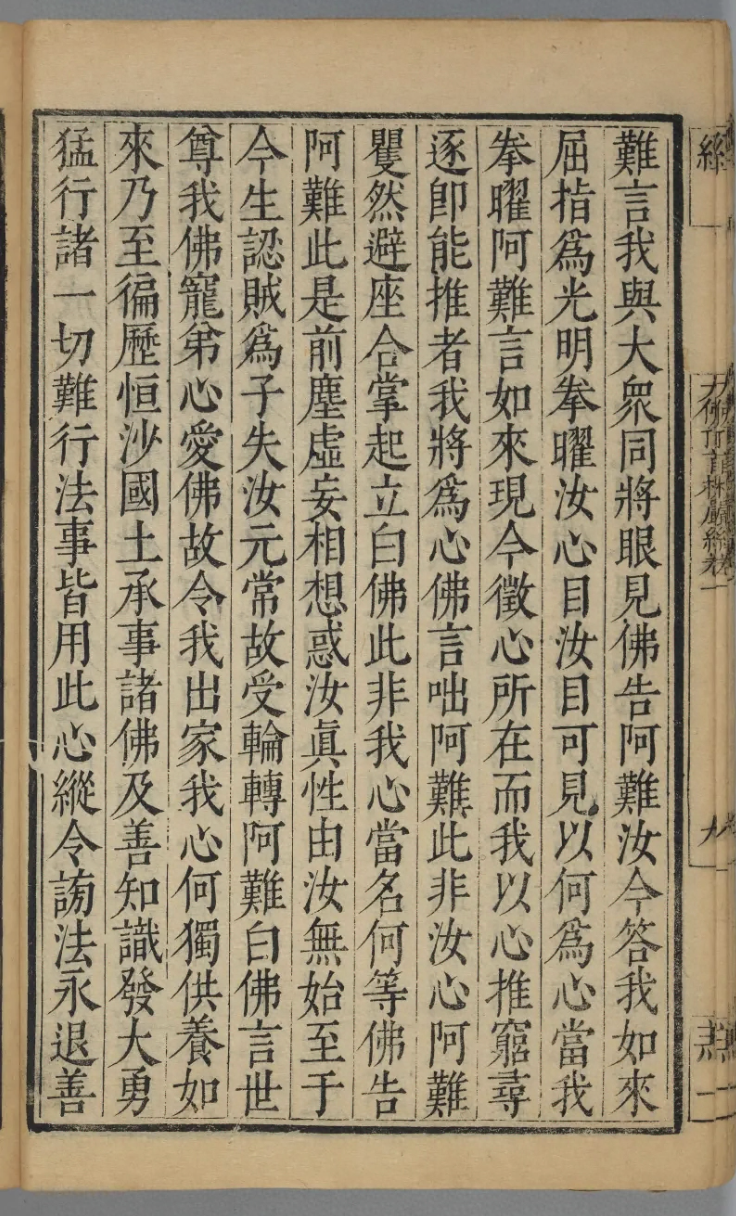 難言我與大衆同將眼見佛告阿難汝今答我如來
屈指爲光明拳曜汝心目汝目可見以何爲心當我
拳曜阿難言如來現今徵心所在而我以心推窮尋
逐卽能推者我將爲心佛言咄阿難此非汝心阿難
矍然避座合掌起立白佛此非我心當名何等佛告
阿難此是前塵虛妄相想惑汝眞性由汝無始至于
今生認賊爲子失汝元常故受輪轉阿難白佛言世
尊我佛寵弟心愛佛故令我出家我心何獨供養如
來乃至徧歷恒沙國土承事諸佛及善知識發大勇
猛行諸一切難行法事皆用此心縱令謗法永退善